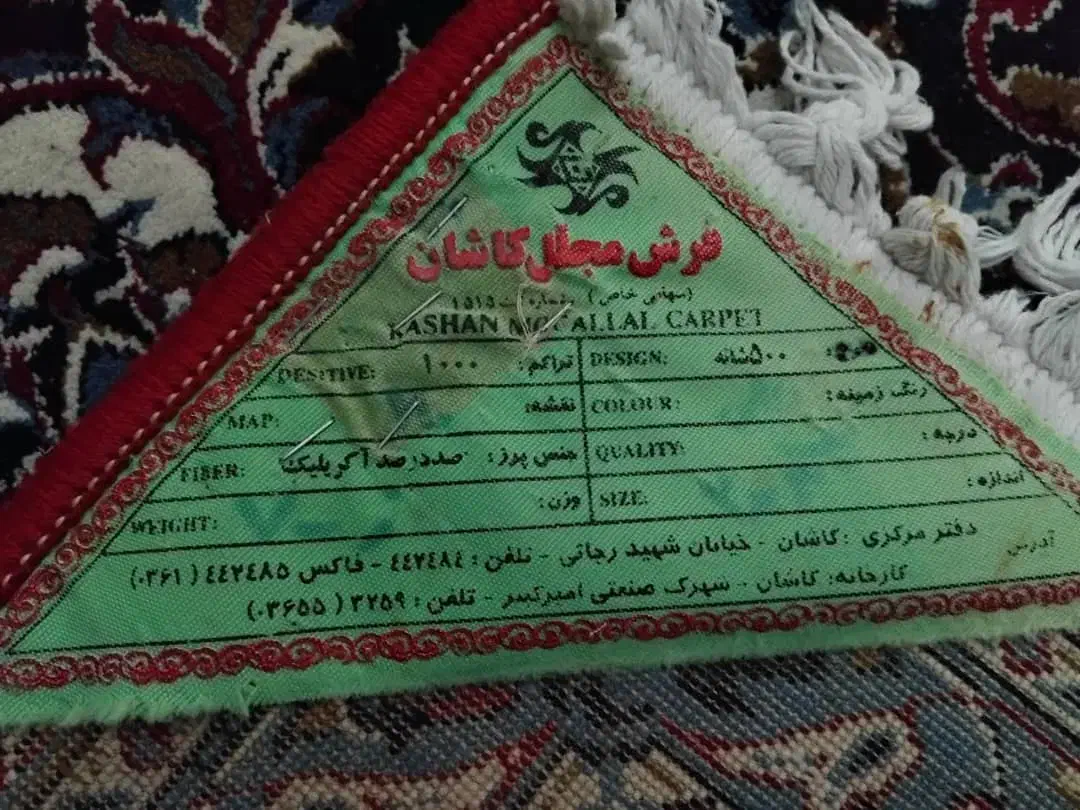 فرش مجلل کاشان
(سهامی خاص) شماره ثبت ۱۵۱۵
KASHAN MOJALLAL CARPET
DESITIVE: ۱۰۰۰ تراکم: DESIGN: ۵۰۰شانه
MAP: نقشه: COLOUR: رنگ زمینه:
FIBER: صددرصد آکریلیک جنس پرز: QUALITY: درجه:
WEIGHT: وزن: SIZE: اندازه:
آدرس دفتر مرکزی: کاشان - خیابان شهید رجائی - تلفن: ۴۴۲۴۸۴ - فاکس ۴۴۲۴۸۵ (۰۳۶۱)
کارخانه: کاشان - شهرک صنعتی امیرکبیر - تلفن: ۳۲۵۹ (۰۳۶۵۵)